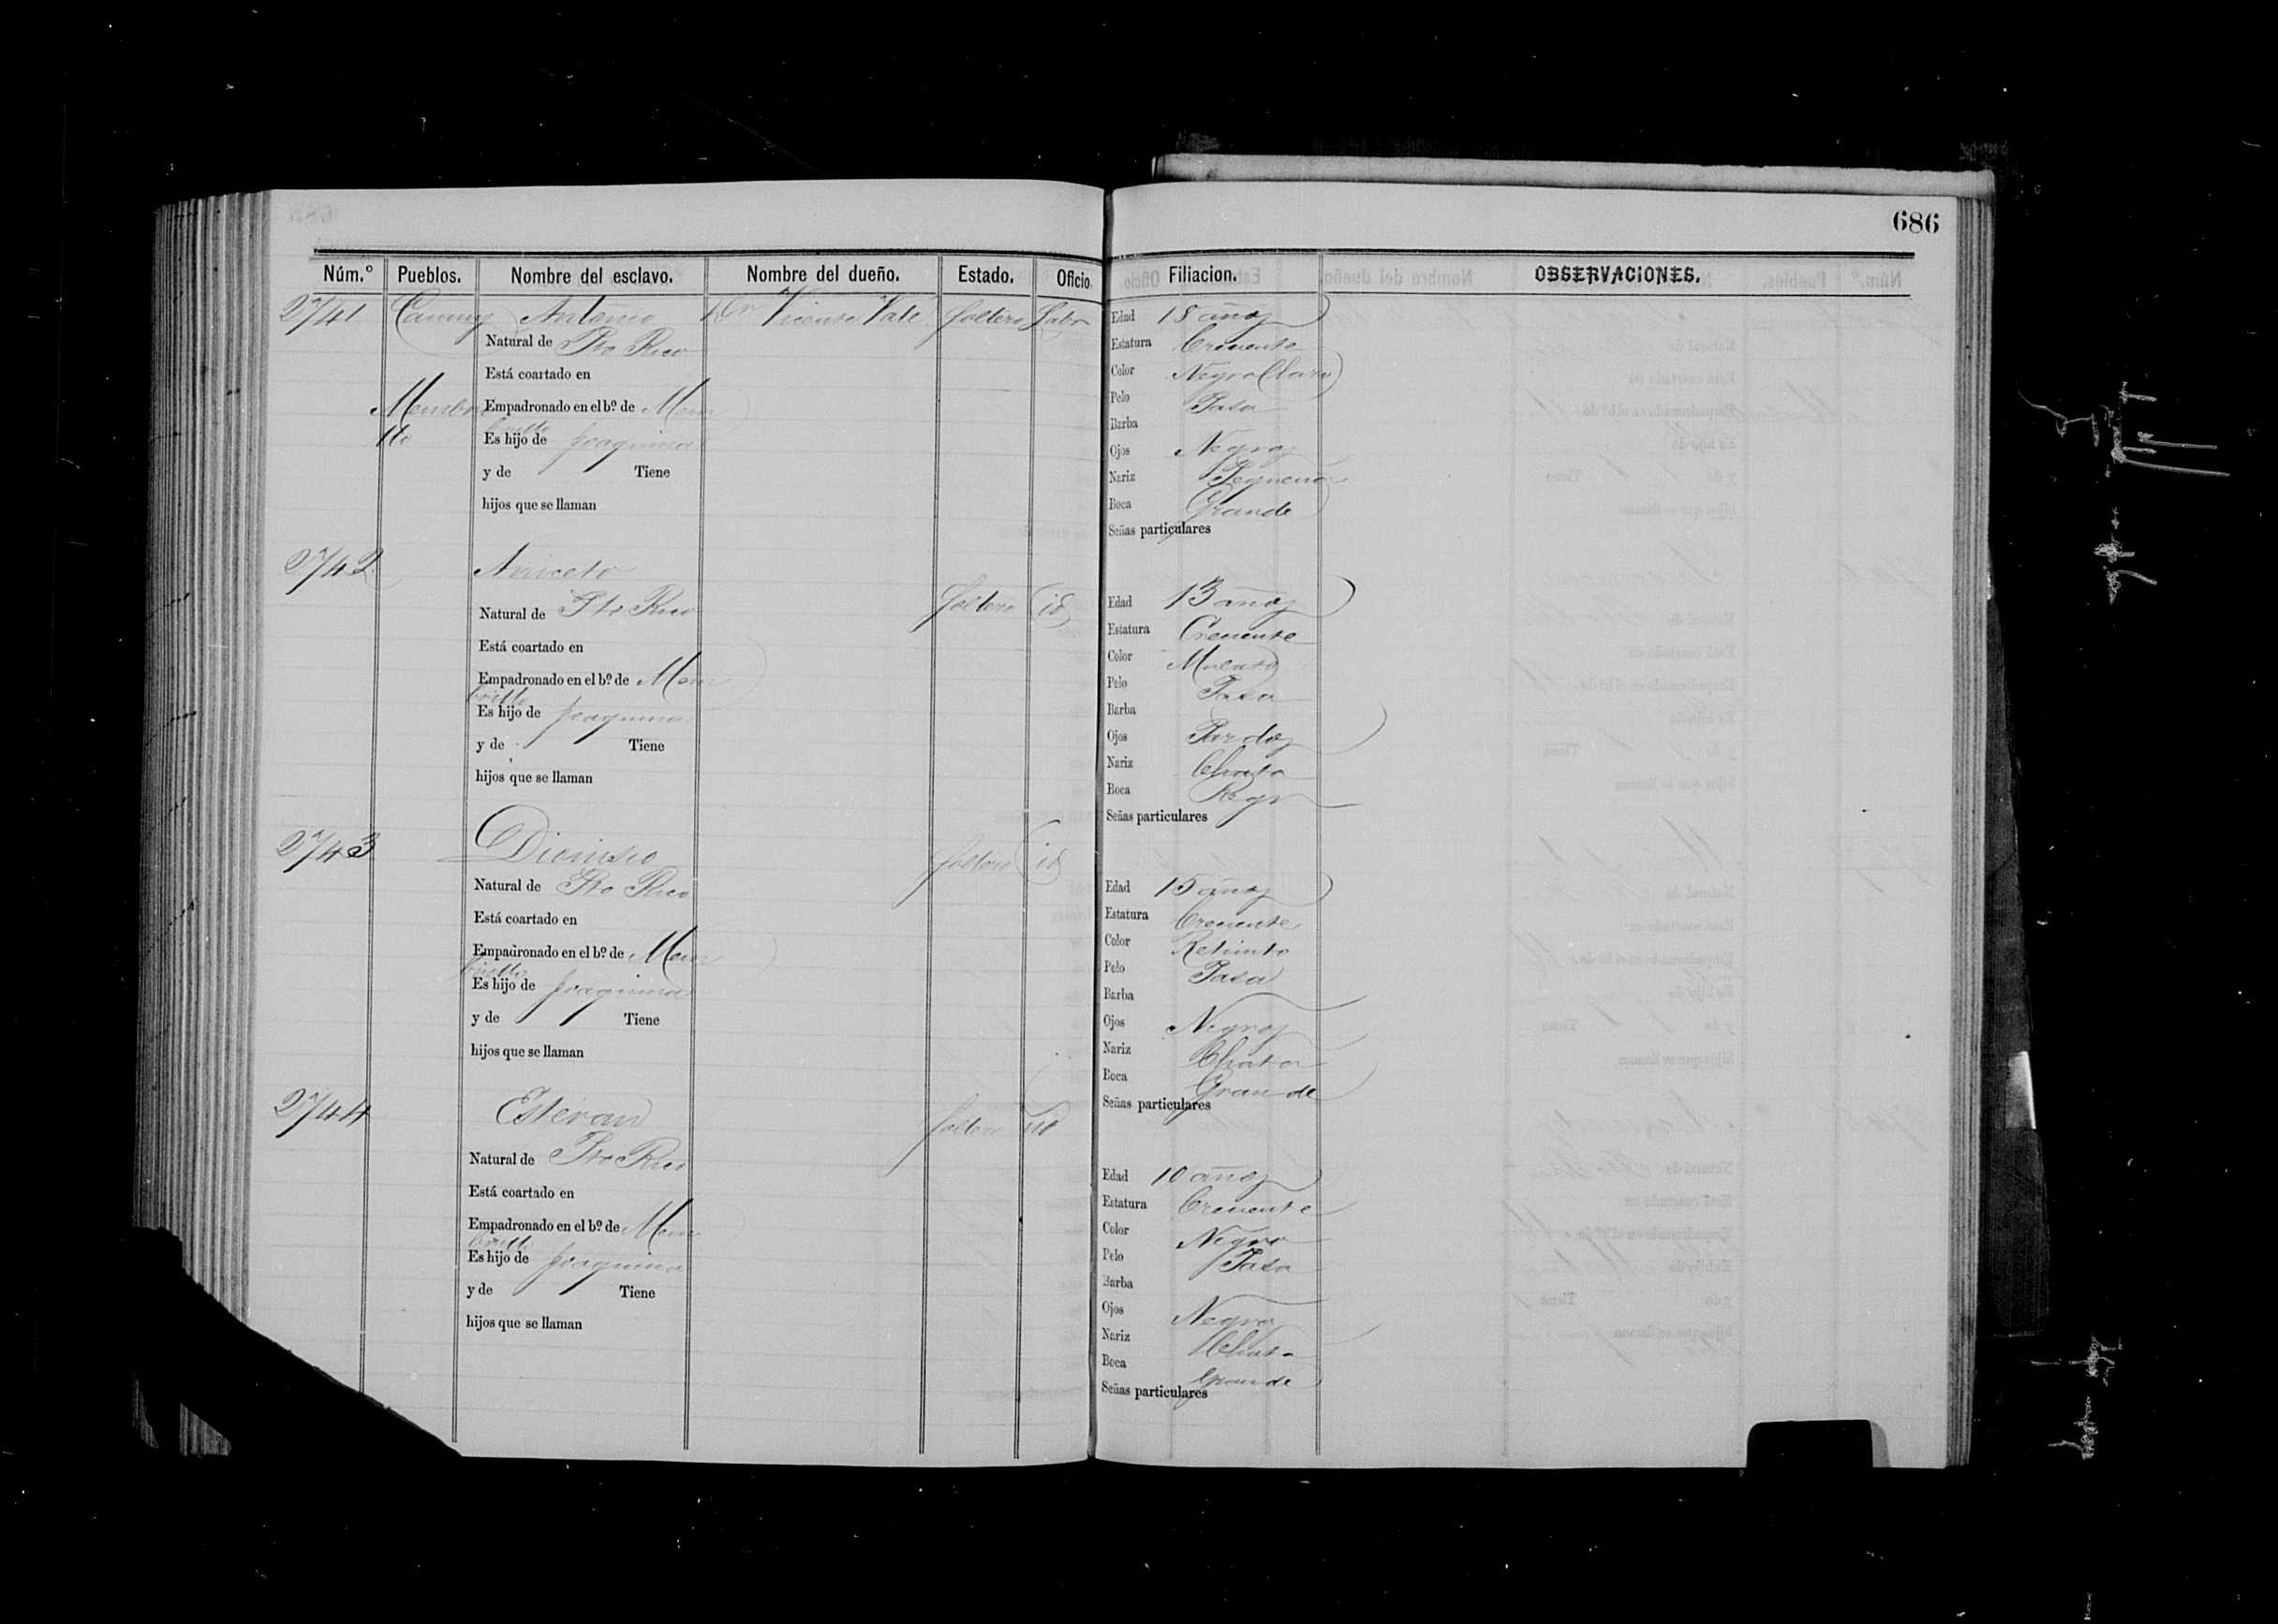 686
Núm.° Pueblos. Nombre del esclavo. Nombre del dueño. Estado. Oficio. Filiacion. OBSERVACIONES.
2741 Camuy Antonio Dn Vicente Vale Soltero Labr
Natural de Pto Rico
Está coartado en
Membri Empadronado en el bº. de Mem
llo brillo
Es hijo de Joaquina
y de Tiene
hijos que se llaman
Edad 18 años
Estatura Creciente
Color Negro Claro
Pelo Pasa
Barba
Ojos Negros
Nariz Pequeña
Boca Grande
Señas particulares
2742 Aniceto Soltero id
Natural de Pto Rico
Está coartado en
Empadronado en el bº. de Mem
brillo
Es hijo de Joaquina
y de Tiene
hijos que se llaman
Edad 13 años
Estatura Creciente
Color Mulato
Pelo Pasa
Barba
Ojos Pardos
Nariz Chata
Boca Regr
Señas particulares
2743 Dionisio Soltero id
Natural de Pto Rico
Está coartado en
Empadronado en el bº. de Mem
brillo
Es hijo de Joaquina
y de Tiene
hijos que se llaman
Edad 15 años
Estatura Creciente
Color Retinto
Pelo Pasa
Barba
Ojos Negros
Nariz Chata
Boca Grande
Señas particulares
2744 Estevan Soltero id
Natural de Pto Rico
Está coartado en
Empadronado en el bº. de Mem
brillo
Es hijo de Joaquina
y de Tiene
hijos que se llaman
Edad 10 años
Estatura Creciente
Color Negro
Pelo Pasa
Barba
Ojos Negros
Nariz Chata
Boca Grande
Señas particulares